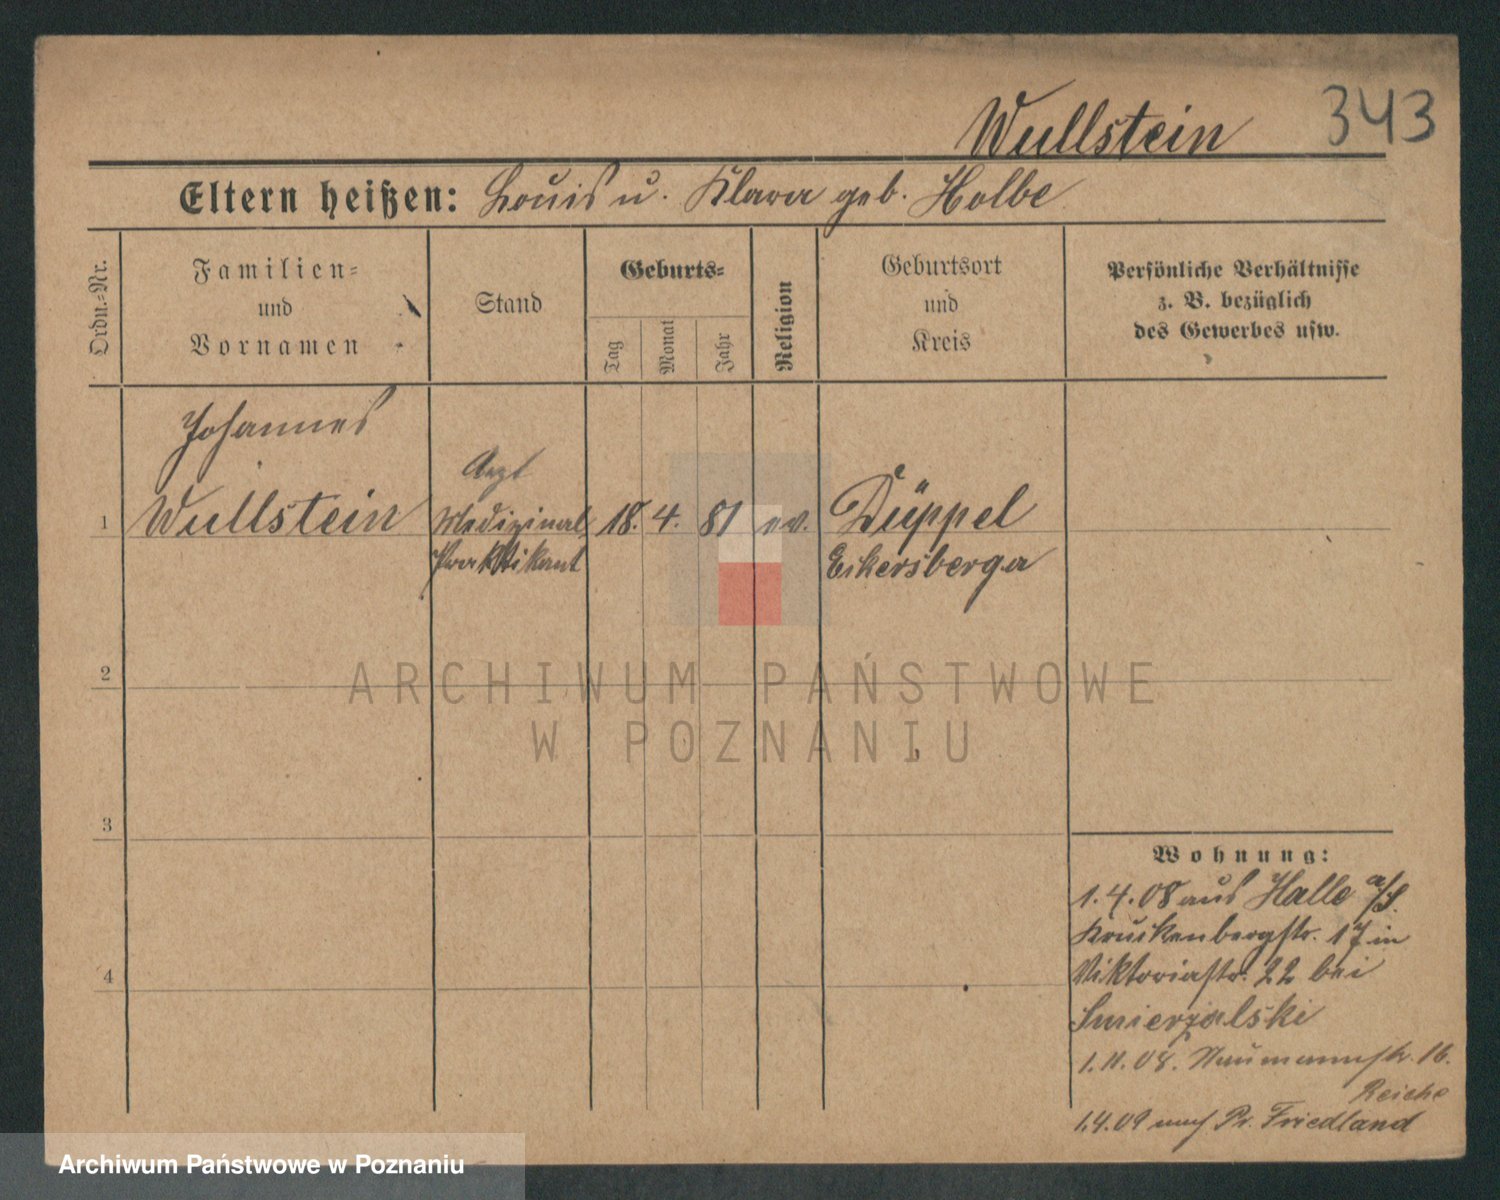 Wullstein 343
Eltern heißen: Louis u. Klara geb. Holbe
Ordn.-Nr.
Familien-
und
Vornamen
Stand
Geburts-
Tag
Monat
Jahr
Religion
Geburtsort
und
Kreis
Persönliche Verhältnisse
z. B. bezüglich
des Gewerbes usw.
Johannes
Arzt
1 Wullstein Medizinal 18. 4. 81 ev. Düppel
Praktikant Eckersberga
2
ARCHIWUM PAŃSTWOWE
W POZNANIU
3
Wohnung:
1.4.08 aus Halle a/S.
Kruckenbergstr. 17 in
Viktoriastr. 22 bei
Smierzalski
4
1.11.08. Naumannstr. 16.
Reiche
1.4.09 nach Pr. Friedland
Archiwum Państwowe w Poznaniu